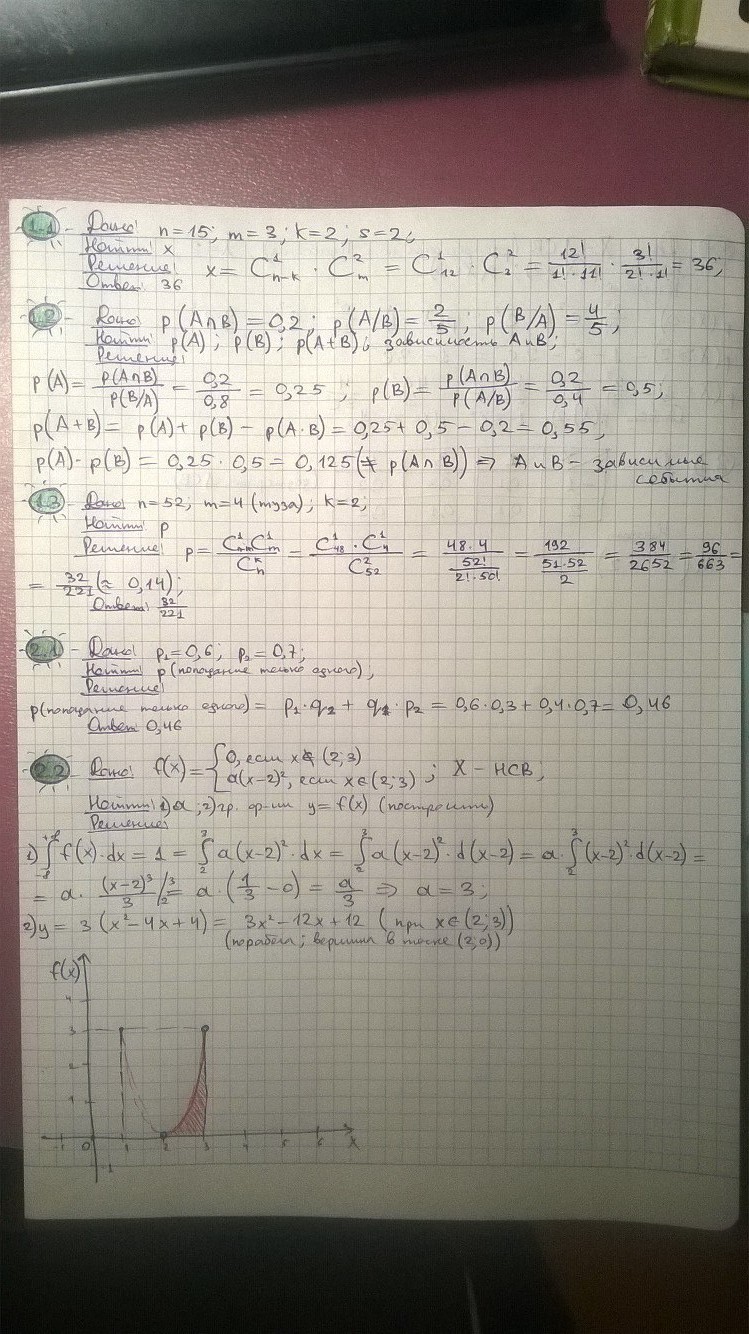 1.1 - Дано: n=15; m=3; k=2; s=2;
Найти: x
Решение: x = C¹ₙ₋ₖ · C²ₘ = C¹₁₂ · C²₃ = 12!/(1!·11!) · 3!/(2!·1!) = 36;
Ответ: 36
1.2 - Дано: p(A∩B)=0,2; p(A/B)=2/5; p(B/A)=4/5;
Найти: p(A); p(B); p(A+B); зависимость A и B;
Решение:
p(A) = p(A∩B)/p(B/A) = 0,2/0,8 = 0,25; p(B) = p(A∩B)/p(A/B) = 0,2/0,4 = 0,5;
p(A+B) = p(A)+p(B)-p(A·B) = 0,25+0,5-0,2 = 0,55;
p(A)·p(B) = 0,25·0,5 = 0,125(≠ p(A∩B)) ⇒ A и B - зависимые
события
1.3 - Дано: n=52; m=4 (туза); k=2;
Найти: p
Решение: p = C¹ₙ₋ₘC¹ₘ/Cᵏₙ = C¹₄₈·C¹₄/C²₅₂ = 48·4/(52!/(2!·50!)) = 192/(51·52/2) = 384/2652 = 96/663 =
= 32/221 (≈ 0,14);
Ответ: 32/221
2.1 - Дано: p₁=0,6; p₂=0,7;
Найти: p(попадание только одного);
Решение:
p(попадание только одного) = p₁·q₂ + q₁·p₂ = 0,6·0,3 + 0,4·0,7 = 0,46
Ответ: 0,46
2.2 - Дано: f(x) = { 0, если x∉(2;3)
a(x-2)², если x∈(2;3) ; X - НСВ;
Найти: 1) a; 2) гр. ф-ии y=f(x) (построить)
Решение:
1) ∫₋∞⁺∞ f(x)·dx = 1 = ∫₂³ a(x-2)²·dx = ∫₂³ a(x-2)²·d(x-2) = a·∫₂³ (x-2)²·d(x-2) =
= a·(x-2)³/3 |₂³ = a·(1/3 - 0) = a/3 ⇒ a=3;
2) y = 3(x²-4x+4) = 3x²-12x+12 (при x∈(2;3))
(парабола; вершина в точке (2;0))
f(x)
4
3
2
1
-1 0 1 2 3 4 5 6 x
-1